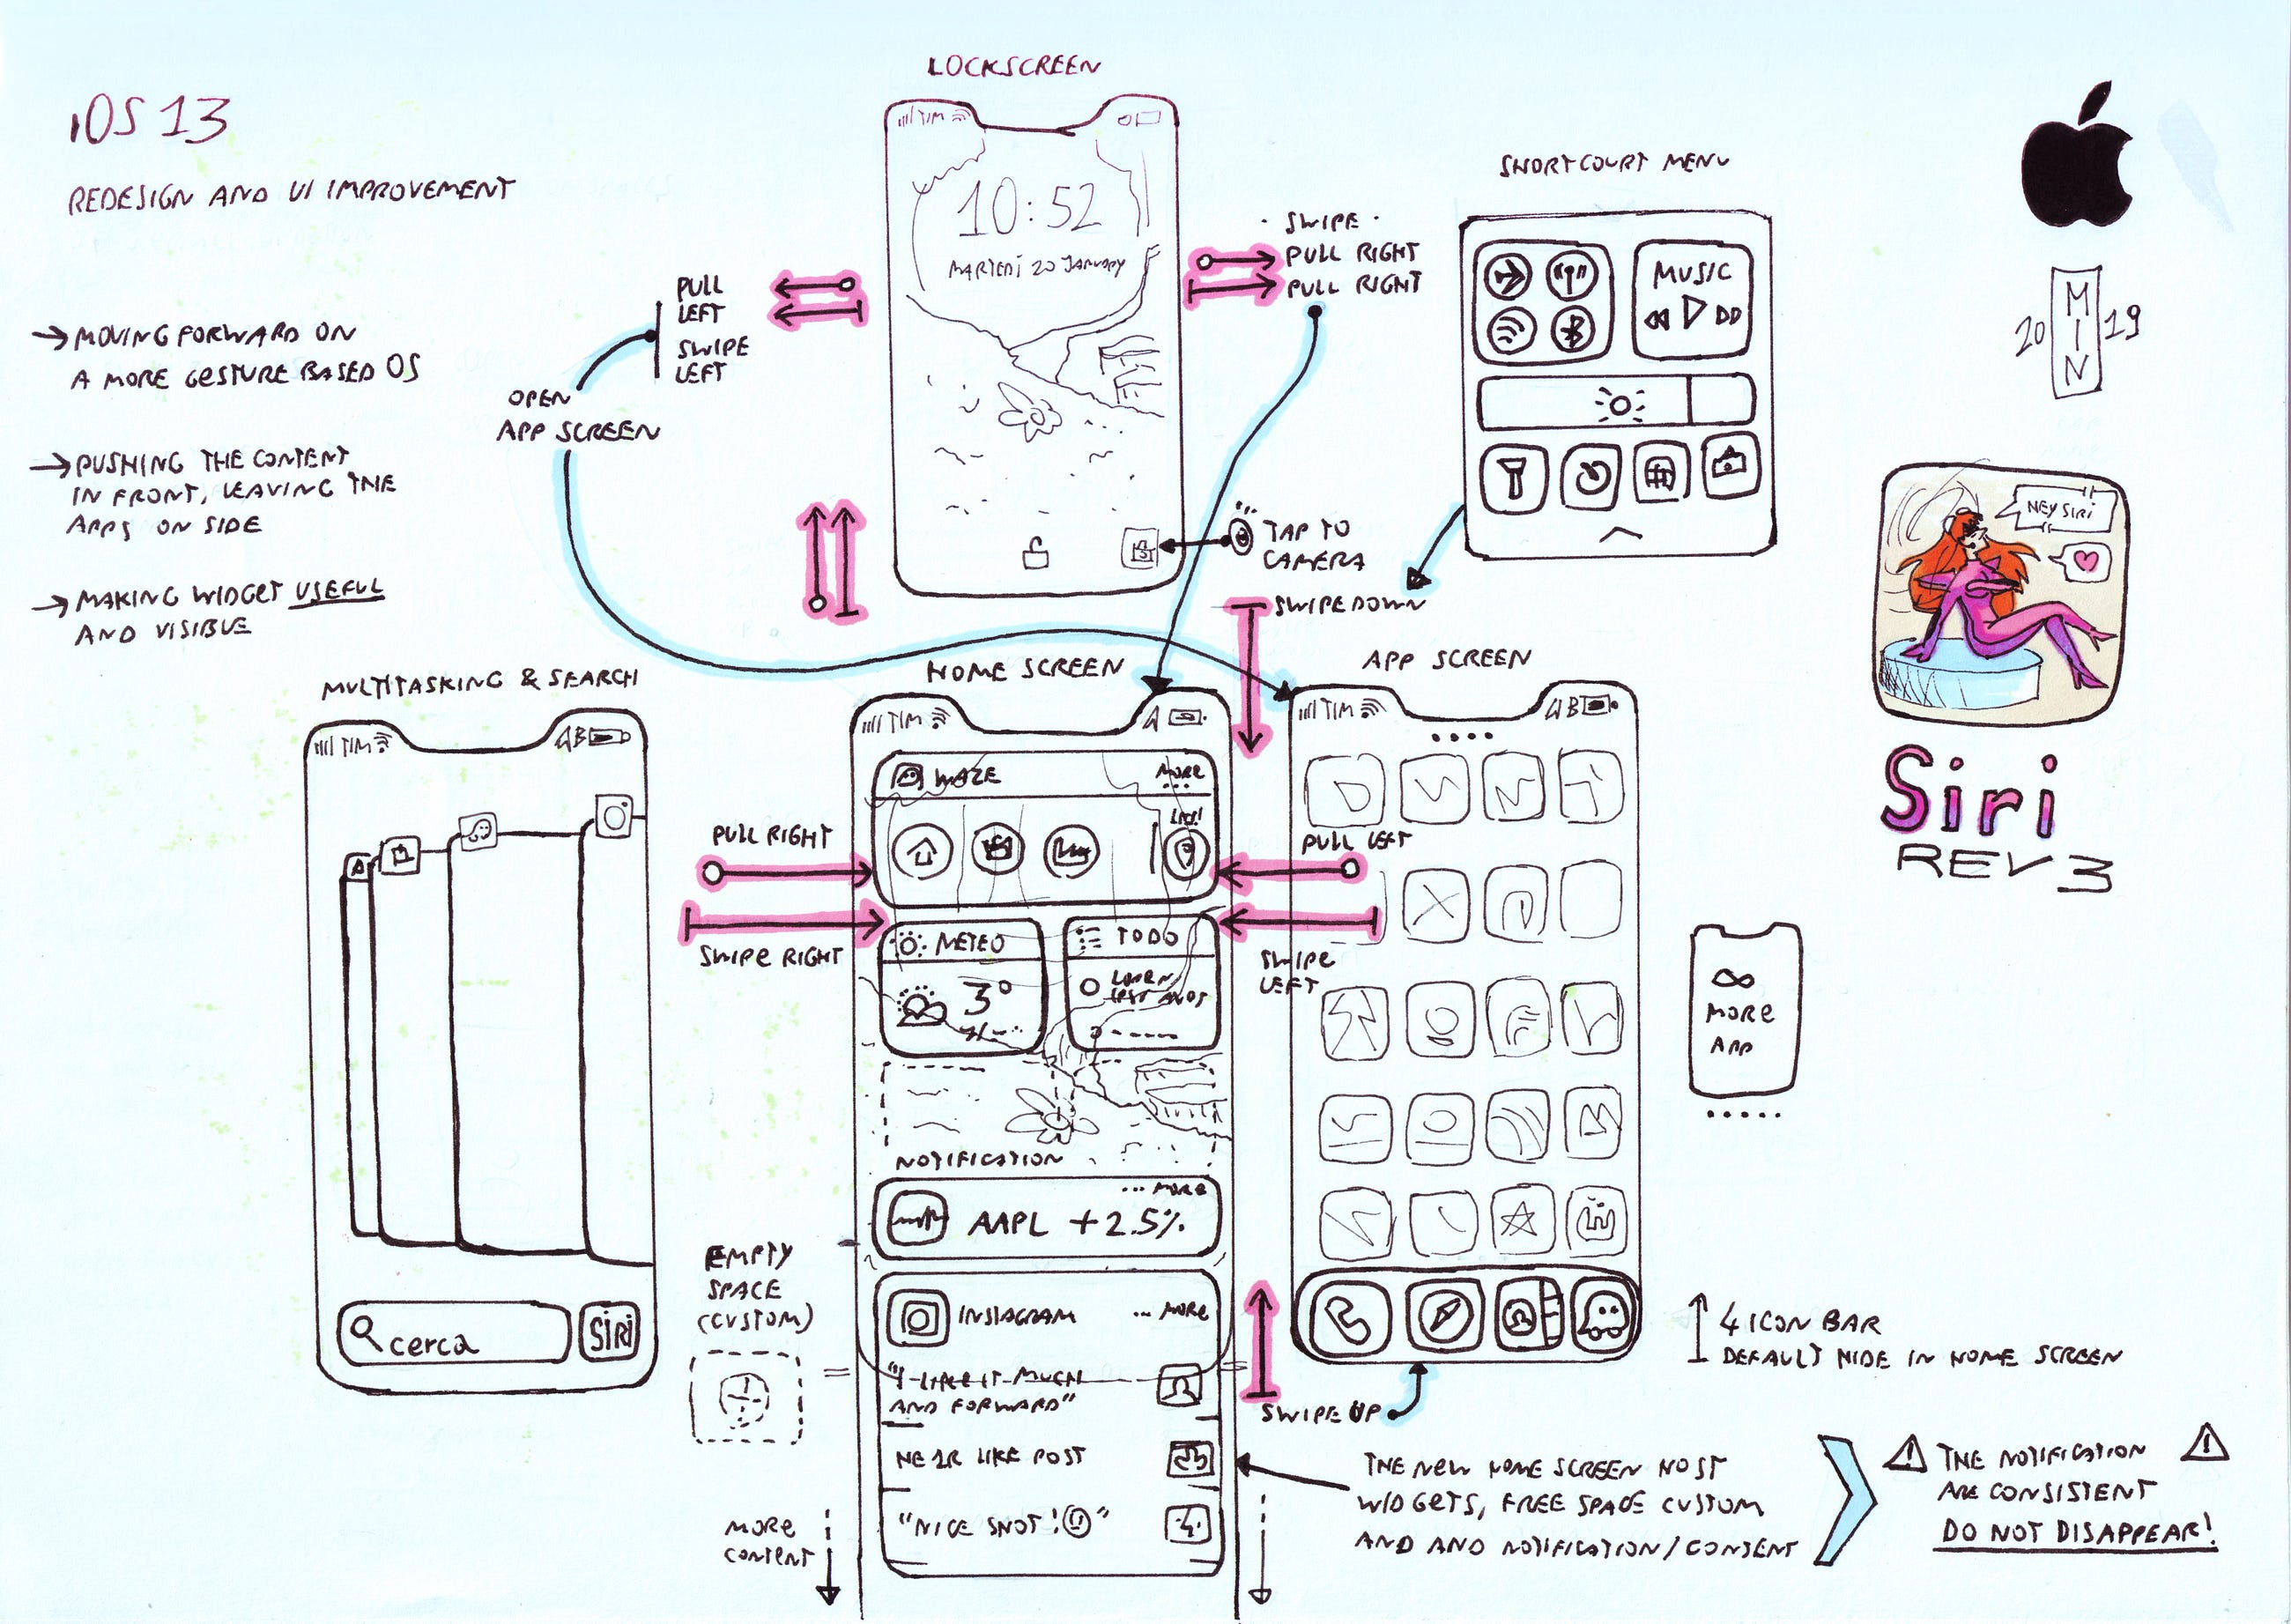 iOS 13
REDESIGN AND UI IMPROVEMENT
→ MOVING FORWARD ON
A MORE GESTURE BASED OS
→ PUSHING THE CONTENT
IN FRONT, LEAVING THE
APPS ON SIDE
→ MAKING WIDGET USEFUL
AND VISIBLE
LOCKSCREEN
TIM
10:52
MARTEDì 20 JANUARY
PULL
LEFT
SWIPE
LEFT
OPEN
APP SCREEN
· SWIPE ·
PULL RIGHT
PULL RIGHT
TAP TO
CAMERA
SHORTCOURT MENU
MUSIC
SWIPE DOWN
20 MIN 19
HEY SIRI
Siri
REV 3
MULTITASKING & SEARCH
TIM
B
cerca
SIRI
HOME SCREEN
TIM
WAZE
MORE
...
PULL RIGHT
SWIPE RIGHT
METEO
3°
TODO
NOTIFICATION
... MORE
AAPL +2.5%
INSTAGRAM
... MORE
"I LIKE IT MUCH
AND FORWARD"
HE1R LIKE POST
"NICE SHOT!☺"
EMPTY
SPACE
(CUSTOM)
MORE
CONTENT
APP SCREEN
TIM
B
PULL LEFT
SWIPE
LEFT
∞
MORE
APP
SWIPE UP
4 ICON BAR
DEFAULT HIDE IN HOME SCREEN
THE NEW HOME SCREEN HOST
WIDGETS, FREE SPACE CUSTOM
AND AND NOTIFICATION/CONTENT
THE NOTIFICATION
ARE CONSISTENT
DO NOT DISAPPEAR!